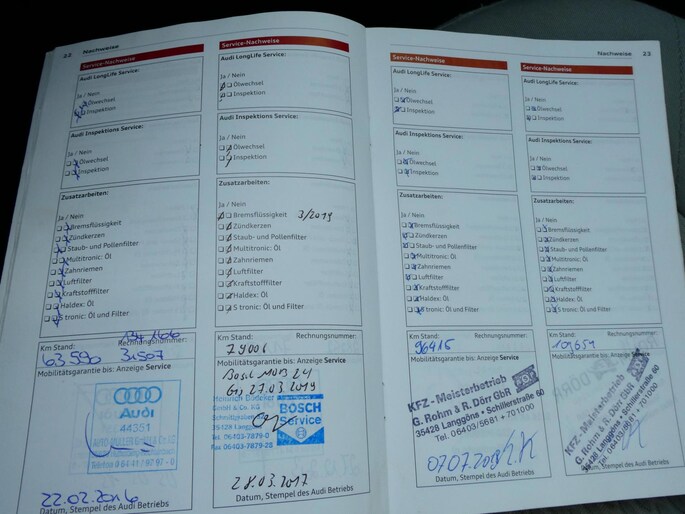 22 Nachweise
Service-Nachweise
Audi LongLife Service:
Ja / Nein
Ölwechsel
Inspektion
Audi Inspektions Service:
Ja / Nein
Ölwechsel
Inspektion
Zusatzarbeiten:
Ja / Nein
Bremsflüssigkeit
Zündkerzen
Staub- und Pollenfilter
Multitronic: Öl
Zahnriemen
Luftfilter
Kraftstofffilter
Haldex: Öl
S tronic: Öl und Filter
Km Stand: Rechnungsnummer:
63590 31507
Mobilitätsgarantie bis: Anzeige Service
Audi
44351
22.02.2016
Datum, Stempel des Audi Betriebs
Service-Nachweise
Audi LongLife Service:
Ja / Nein
Ölwechsel
Inspektion
Audi Inspektions Service:
Ja / Nein
Ölwechsel
Inspektion
Zusatzarbeiten:
Ja / Nein
Bremsflüssigkeit 3/2019
Zündkerzen
Staub- und Pollenfilter
Multitronic: Öl
Zahnriemen
Luftfilter
Kraftstofffilter
Haldex: Öl
S tronic: Öl und Filter
Km Stand: Rechnungsnummer:
Mobilitätsgarantie bis: Anzeige Service
27.03.2019
BOSCH
Service
Tel. 06403-7879-0
Fax 06403-7879-28
28.03.2017
Datum, Stempel des Audi Betriebs
Nachweise 23
Service-Nachweise
Audi LongLife Service:
Ja / Nein
Ölwechsel
Inspektion
Audi Inspektions Service:
Ja / Nein
Ölwechsel
Inspektion
Zusatzarbeiten:
Ja / Nein
Bremsflüssigkeit
Zündkerzen
Staub- und Pollenfilter
Multitronic: Öl
Zahnriemen
Luftfilter
Kraftstofffilter
Haldex: Öl
S tronic: Öl und Filter
Km Stand: Rechnungsnummer:
96415
Mobilitätsgarantie bis: Anzeige Service
KFZ - Meisterbetrieb
G. Rohm & R. Dörr GbR
35428 Langgöns • Schillerstraße 60
Tel. 06403/5681 + 701000
Datum, Stempel des Audi Betriebs
Service-Nachweise
Audi LongLife Service:
Ja / Nein
Ölwechsel
Inspektion
Audi Inspektions Service:
Ja / Nein
Ölwechsel
Inspektion
Zusatzarbeiten:
Ja / Nein
Bremsflüssigkeit
Zündkerzen
Staub- und Pollenfilter
Multitronic: Öl
Zahnriemen
Luftfilter
Kraftstofffilter
Haldex: Öl
S tronic: Öl und Filter
Km Stand: Rechnungsnummer:
Mobilitätsgarantie bis: Anzeige Service
KFZ - Meisterbetrieb
G. Rohm & R. Dörr GbR
35428 Langgöns • Schillerstraße 60
Tel. 06403/5681 + 701000
Datum, Stempel des Audi Betriebs